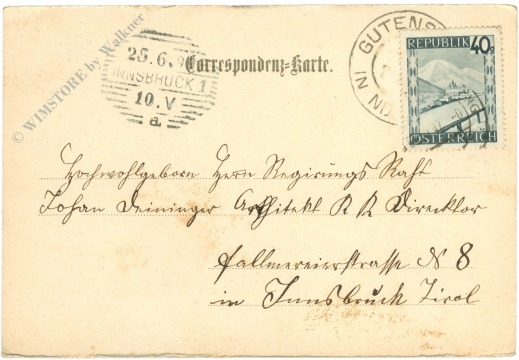 © WIMSTORE by Walkner
25.6.9
INNSBRUCK 1
10.V
a
Correspondenz-Karte.
GUTENS
IN ND.
REPUBLIK 40g
ÖSTERREICH
Hochwohlgeborn Herrn Regirungs Raht
Johan Deininger Architekt K K Direcktor
fallmereierstrasse N 8
in Innsbruck Tirol